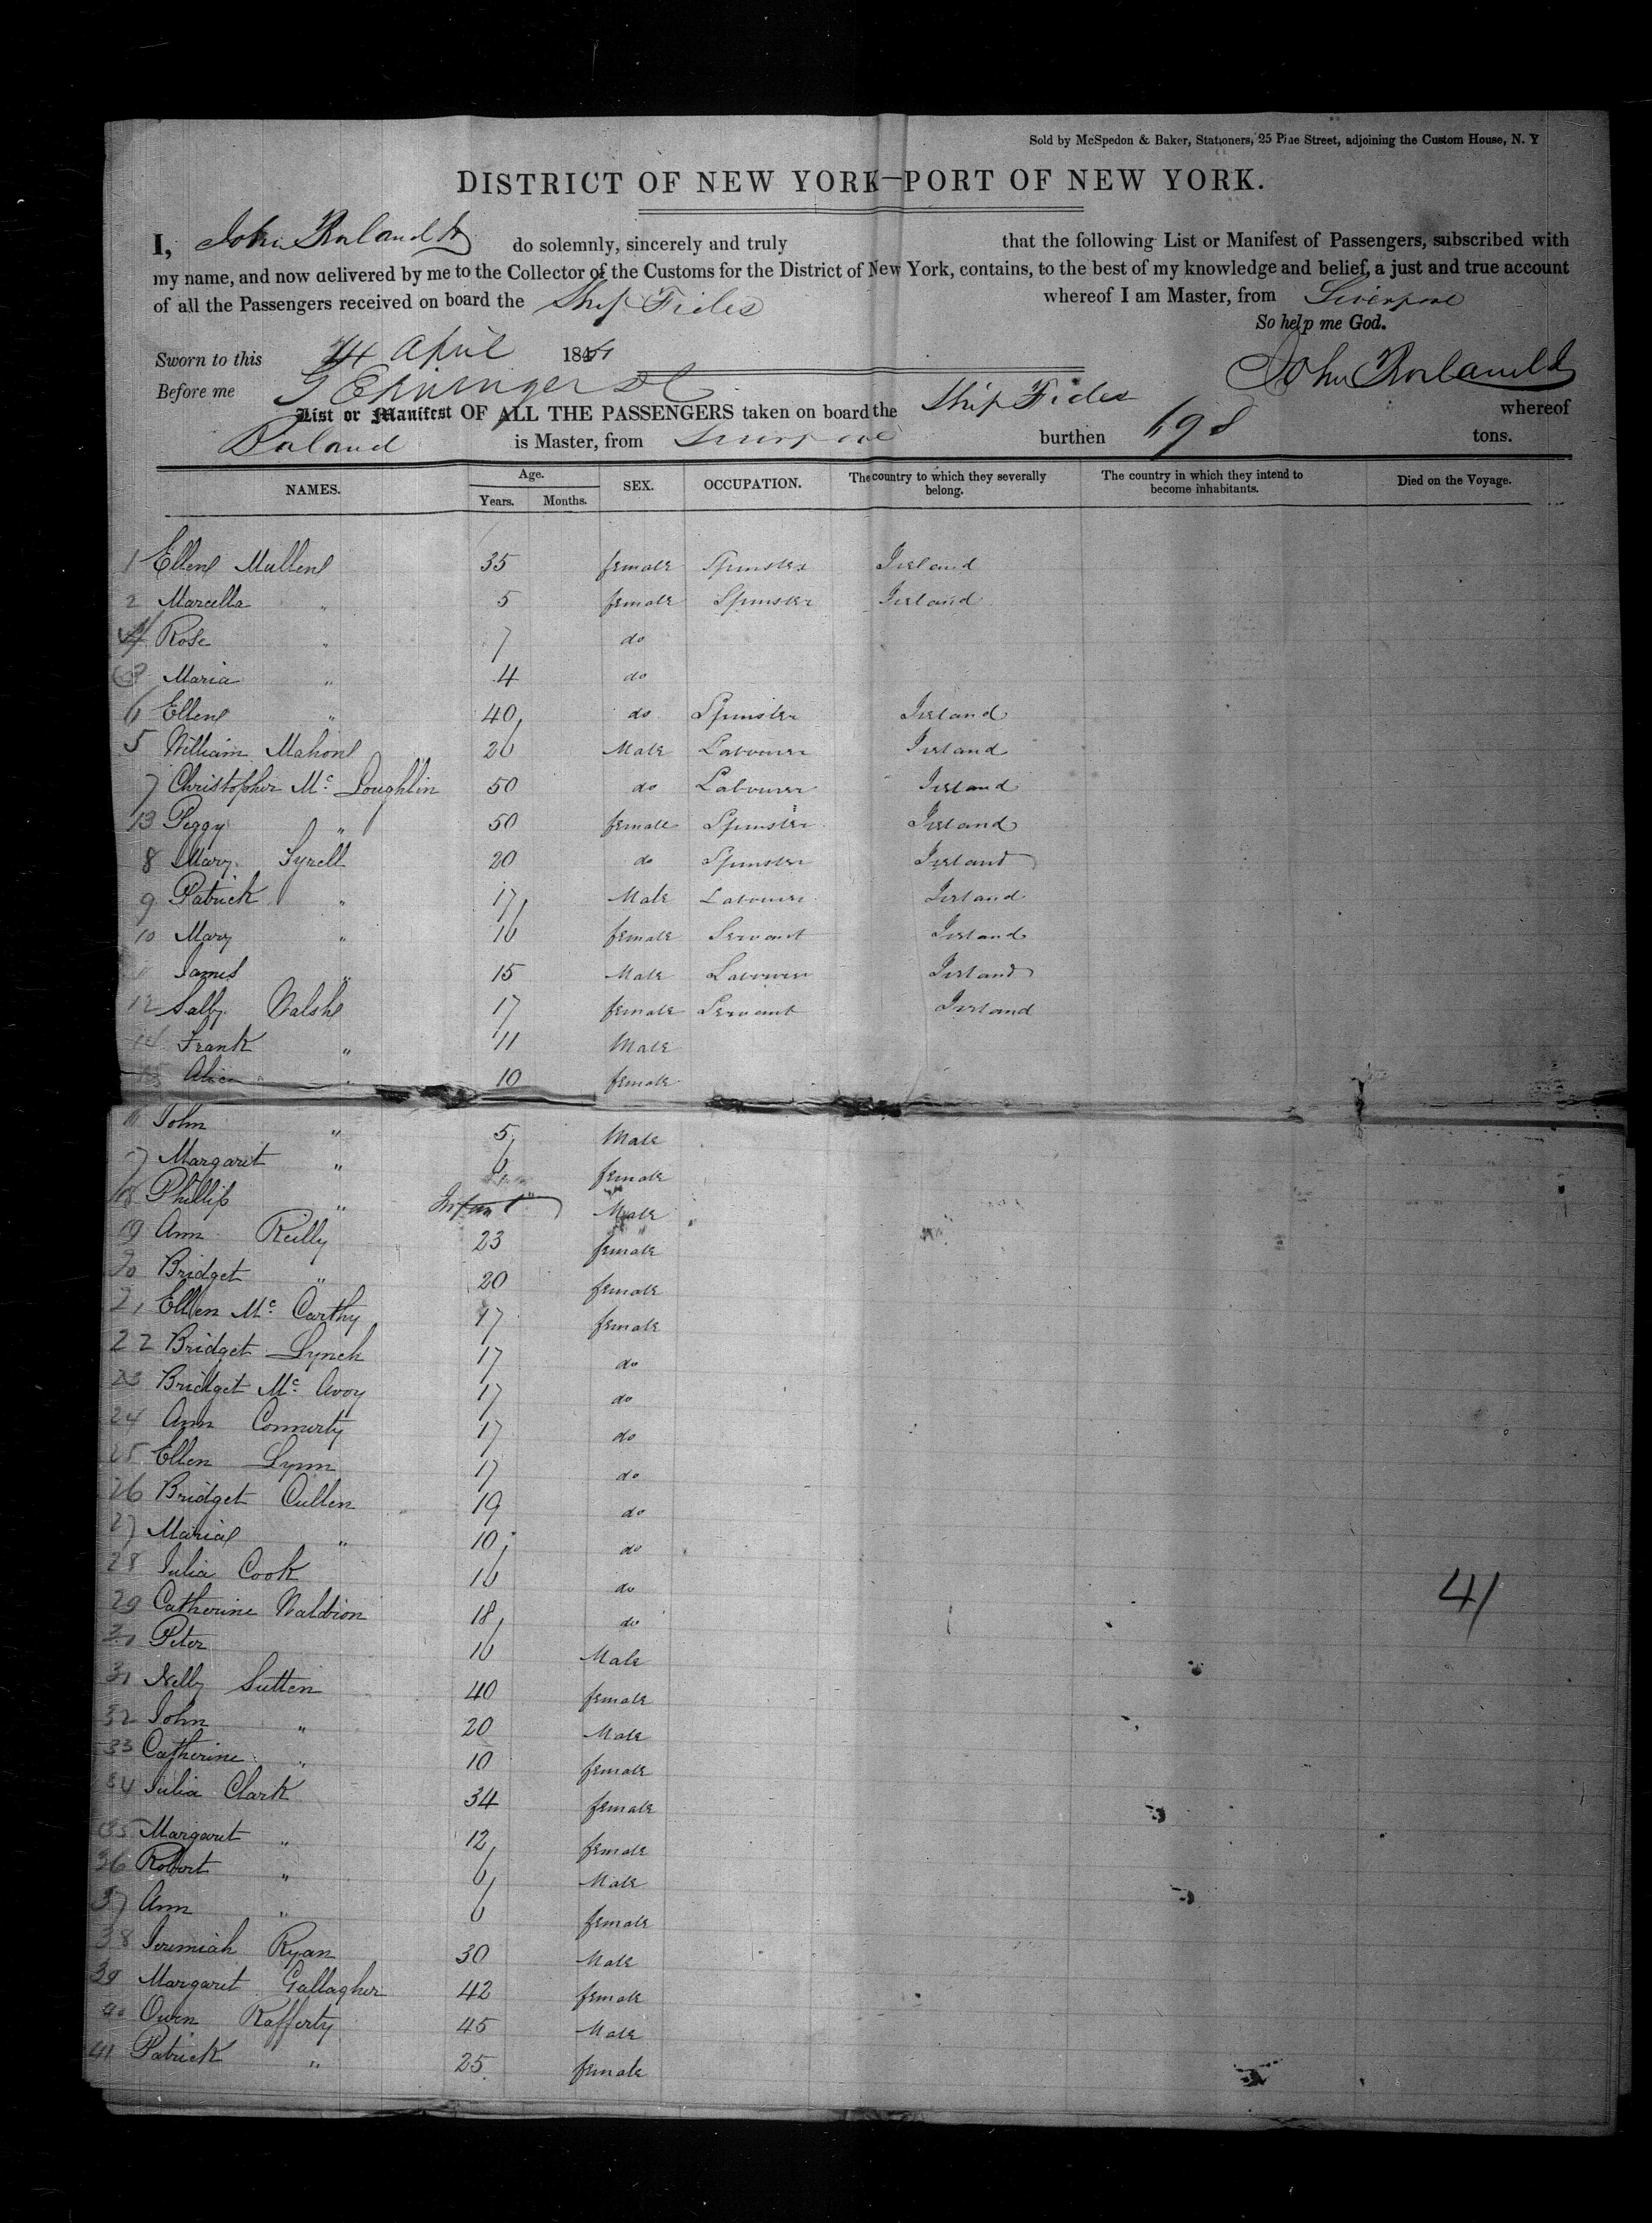 Sold by McSpedon & Baker, Stationers, 25 Pine Street, adjoining the Custom House, N. Y
DISTRICT OF NEW YORK—PORT OF NEW YORK.
I, John do solemnly, sincerely and truly that the following List or Manifest of Passengers, subscribed with
my name, and now delivered by me to the Collector of the Customs for the District of New York, contains, to the best of my knowledge and belief, a just and true account
of all the Passengers received on board the Ship Fides whereof I am Master, from Liverpool
So help me God.
Sworn to this 24 April 18
Before me John
List or Manifest OF ALL THE PASSENGERS taken on board the Ship Fides whereof
is Master, from Liverpool burthen 698 tons.
NAMES. Age. Years. Months. SEX. OCCUPATION. The country to which they severally belong. The country in which they intend to become inhabitants. Died on the Voyage.
1 Ellen Mullen 35 female Spinster Ireland
2 Marcella " 5 female Spinster Ireland
4 Rose " 7 do
3 Maria " 4 do
6 Ellen " 40 do Spinster Ireland
5 William Mahon 26 Male Labourer Ireland
7 Christopher Mc Loughlin 50 do Labourer Ireland
13 Peggy " 50 female Spinster Ireland
8 Mary Tyrell 20 do Spinster Ireland
9 Patrick " 17 Male Labourer Ireland
10 Mary " 16 female Servant Ireland
James " 15 Male Labourer Ireland
12 Sally Walsh 17 female Servant Ireland
14 Frank " 11 Male
Alice " 10 female
John " 5 Male
Margaret " 6 female
18 Phillip " Infant Male
19 Ann Reilly 23 female
20 Bridget " 20 female
21 Ellen Mc Carthy 17 female
22 Bridget Lynch 17 do
23 Bridget Mc Avoy 17 do
24 Ann Connerty 17 do
25 Ellen Lynn 17 do
26 Bridget Cullen 19 do
27 Maria " 10 do
28 Julia Cook 16 do
29 Catherine Waldron 18 do
Peter 16 Male
31 Nelly Sutten 40 female
32 John " 20 Male
33 Catherine " 10 female
34 Julia Clark 34 female
35 Margaret " 12 female
36 Robert " 6 Male
37 Ann " 6 female
38 Jeremiah Ryan 30 Male
39 Margaret Gallagher 42 female
40 Owen Rafferty 45 Male
41 Patrick " 25 female
41